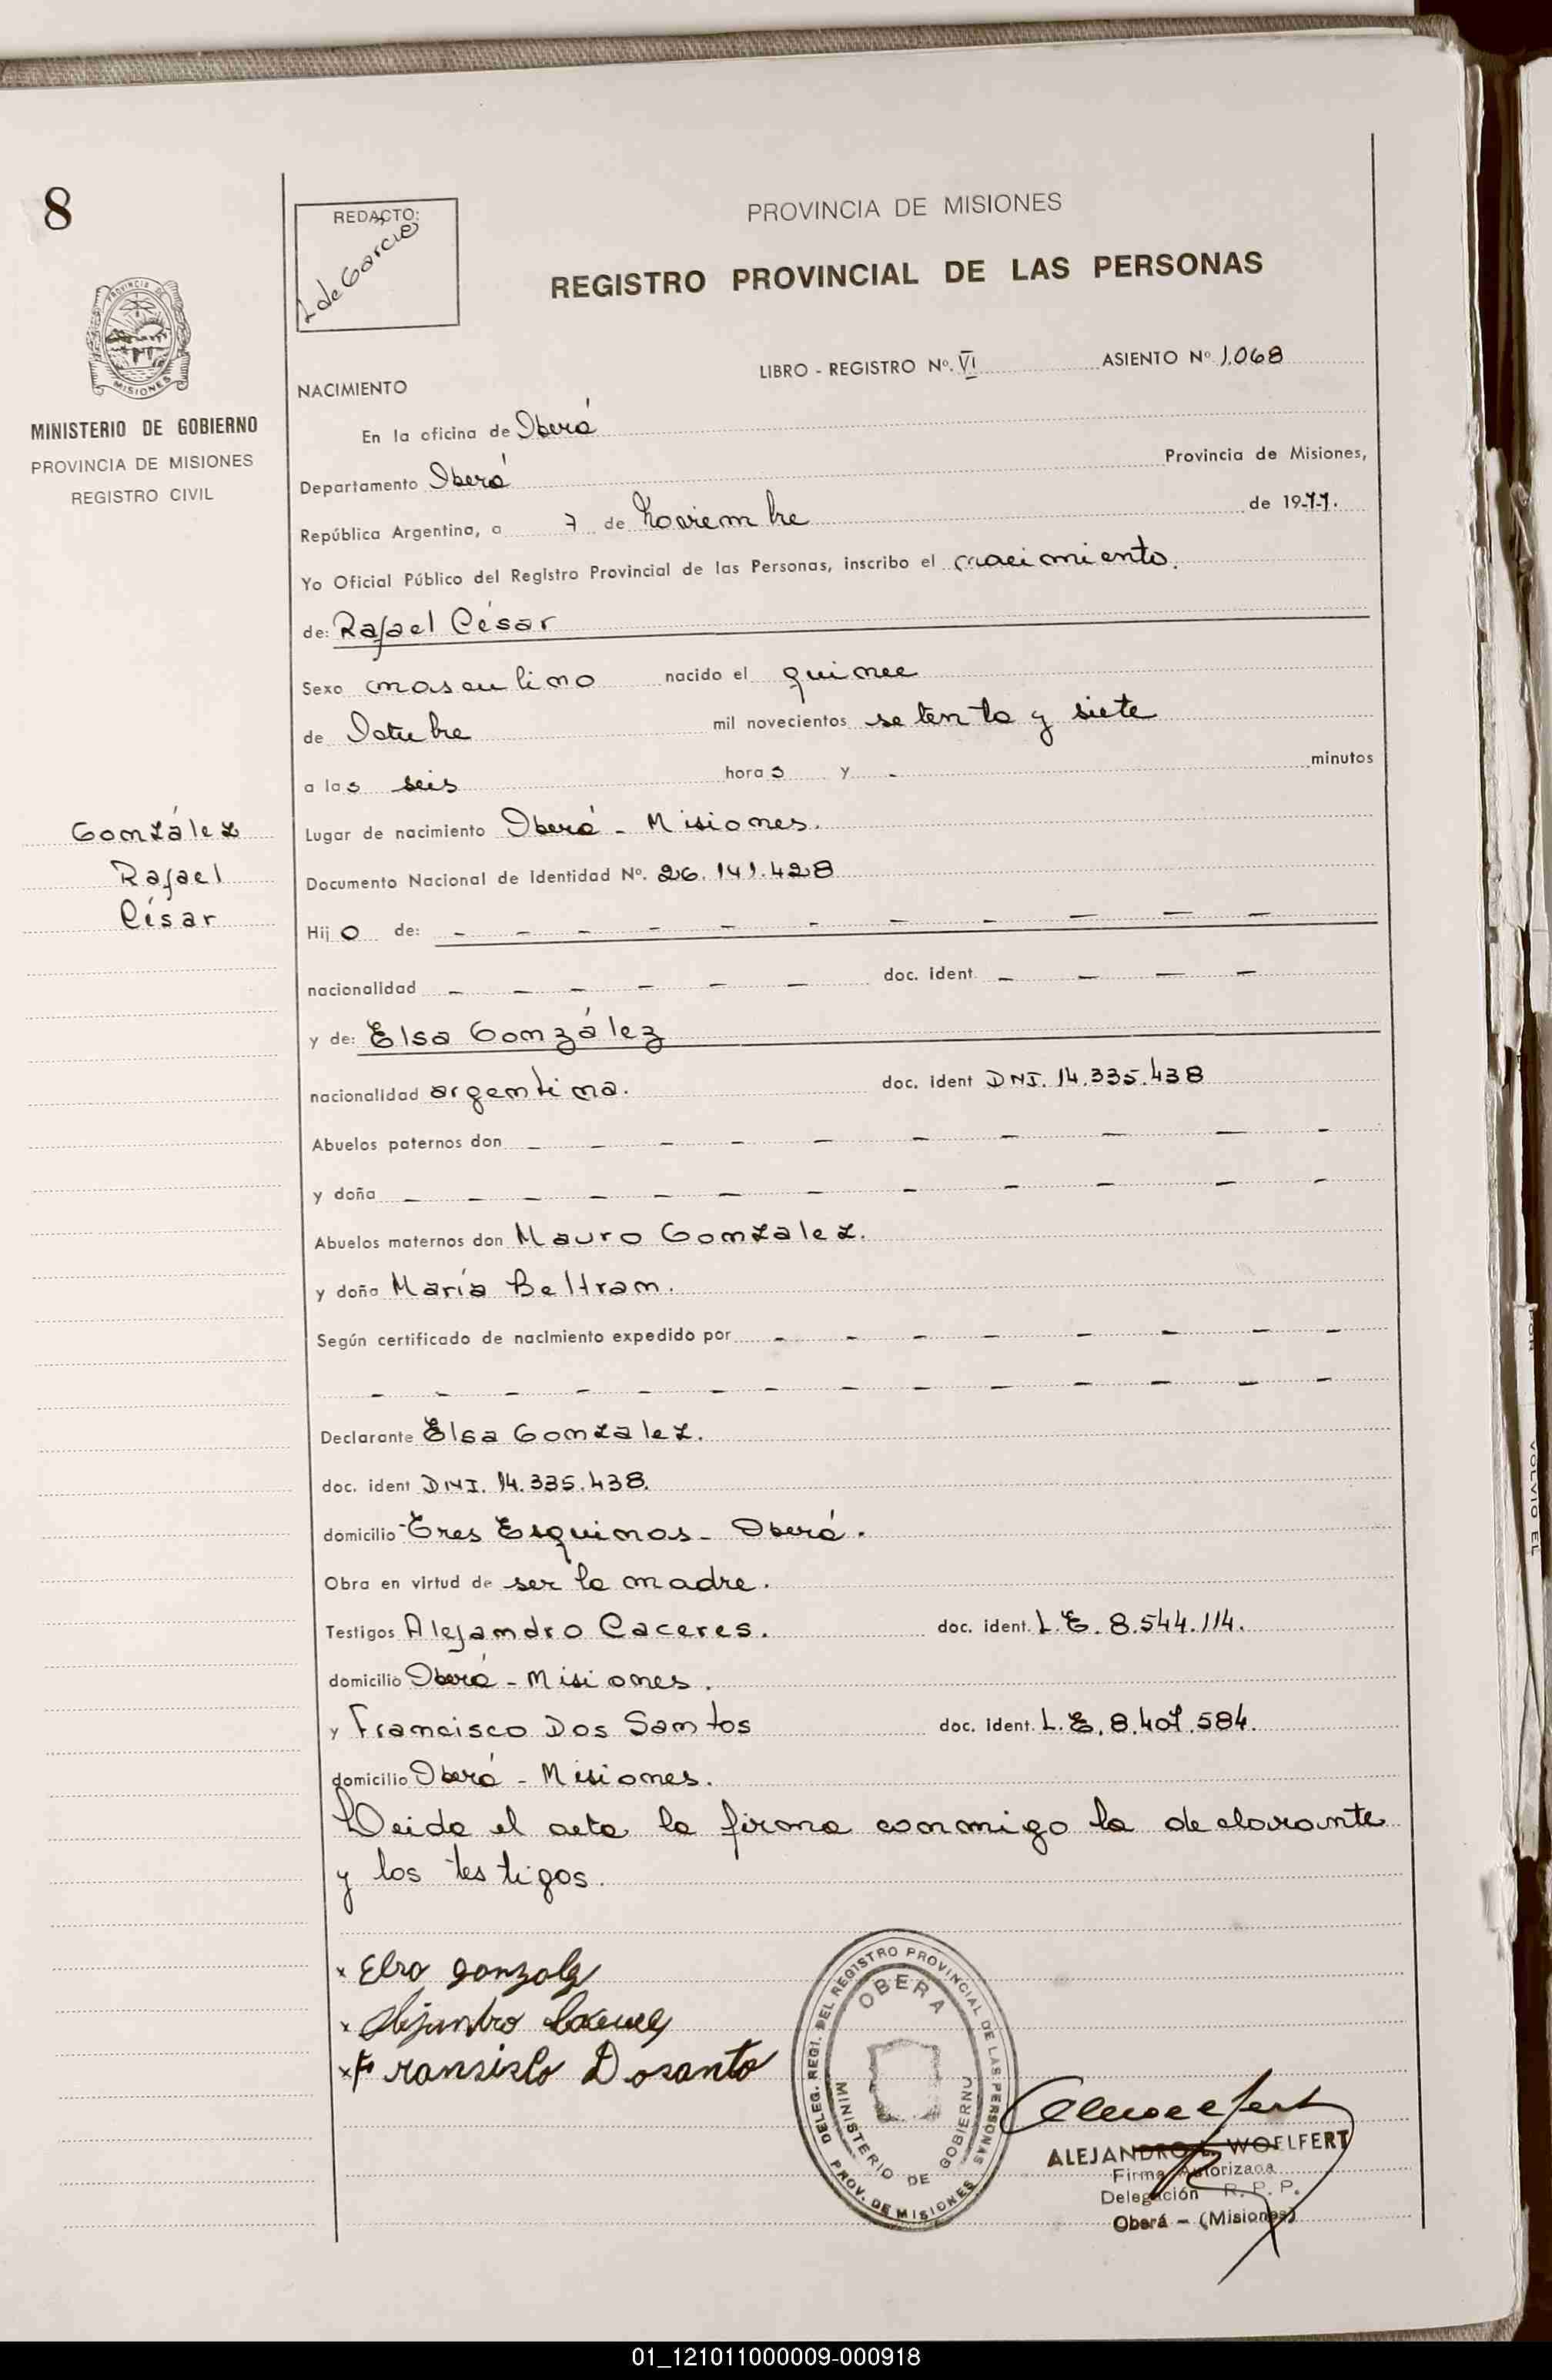 8
REDACTO:
L de Garcia
PROVINCIA DE MISIONES
REGISTRO PROVINCIAL DE LAS PERSONAS
PROVINCIA DE
MISIONES
MINISTERIO DE GOBIERNO
PROVINCIA DE MISIONES
REGISTRO CIVIL
LIBRO - REGISTRO Nº. VI ASIENTO Nº 1.068
NACIMIENTO
En la oficina de Oberá
Departamento Oberá Provincia de Misiones,
República Argentina, a 7 de Noviembre de 1977.
Yo Oficial Público del Registro Provincial de las Personas, inscribo el nacimiento.
de: Rafael César
Sexo masculino nacido el quince
de Octubre mil novecientos setenta y siete
a las seis horas y - minutos
González
Rafael
César
Lugar de nacimiento Oberá - Misiones.
Documento Nacional de Identidad Nº. 26.141.428
Hijo de: - - - - - - - - - - -
nacionalidad - - - - - - doc. ident. - - - -
y de: Elsa González
nacionalidad argentina. doc. ident DNI. 14.335.438
Abuelos paternos don - - - - - - - - - -
y doña - - - - - - - - - - - -
Abuelos maternos don Mauro Gonzalez.
y doña María Beltram.
Según certificado de nacimiento expedido por - - - - - - - -
- - - - - - - - - - - - - -
Declarante Elsa Gonzalez.
doc. ident DNI. 14.335.438.
domicilio Tres Esquinas - Oberá.
Obra en virtud de ser la madre.
Testigos Alejandro Caceres. doc. ident. L.E. 8.544.114.
domicilio Oberá - Misiones.
y Francisco Dos Santos doc. ident. L.E. 8.407.584.
domicilio Oberá - Misiones.
Leida el acta la firma conmigo la declarante
y los testigos.
x Elsa gonzalz
x Alejandro Caceres
x Fransisco Dosanto
DELEG. REGI. DEL REGISTRO PROVINCIAL DE LAS PERSONAS
OBERA
MINISTERIO DE GOBIERNO
PROV. DE MISIONES
ALEJANDRO L. WOELFERT
Firma Autorizada
Delegación R. P. P.
Oberá - (Misiones)
POR
VOLVIO EL
01_121011000009-000918